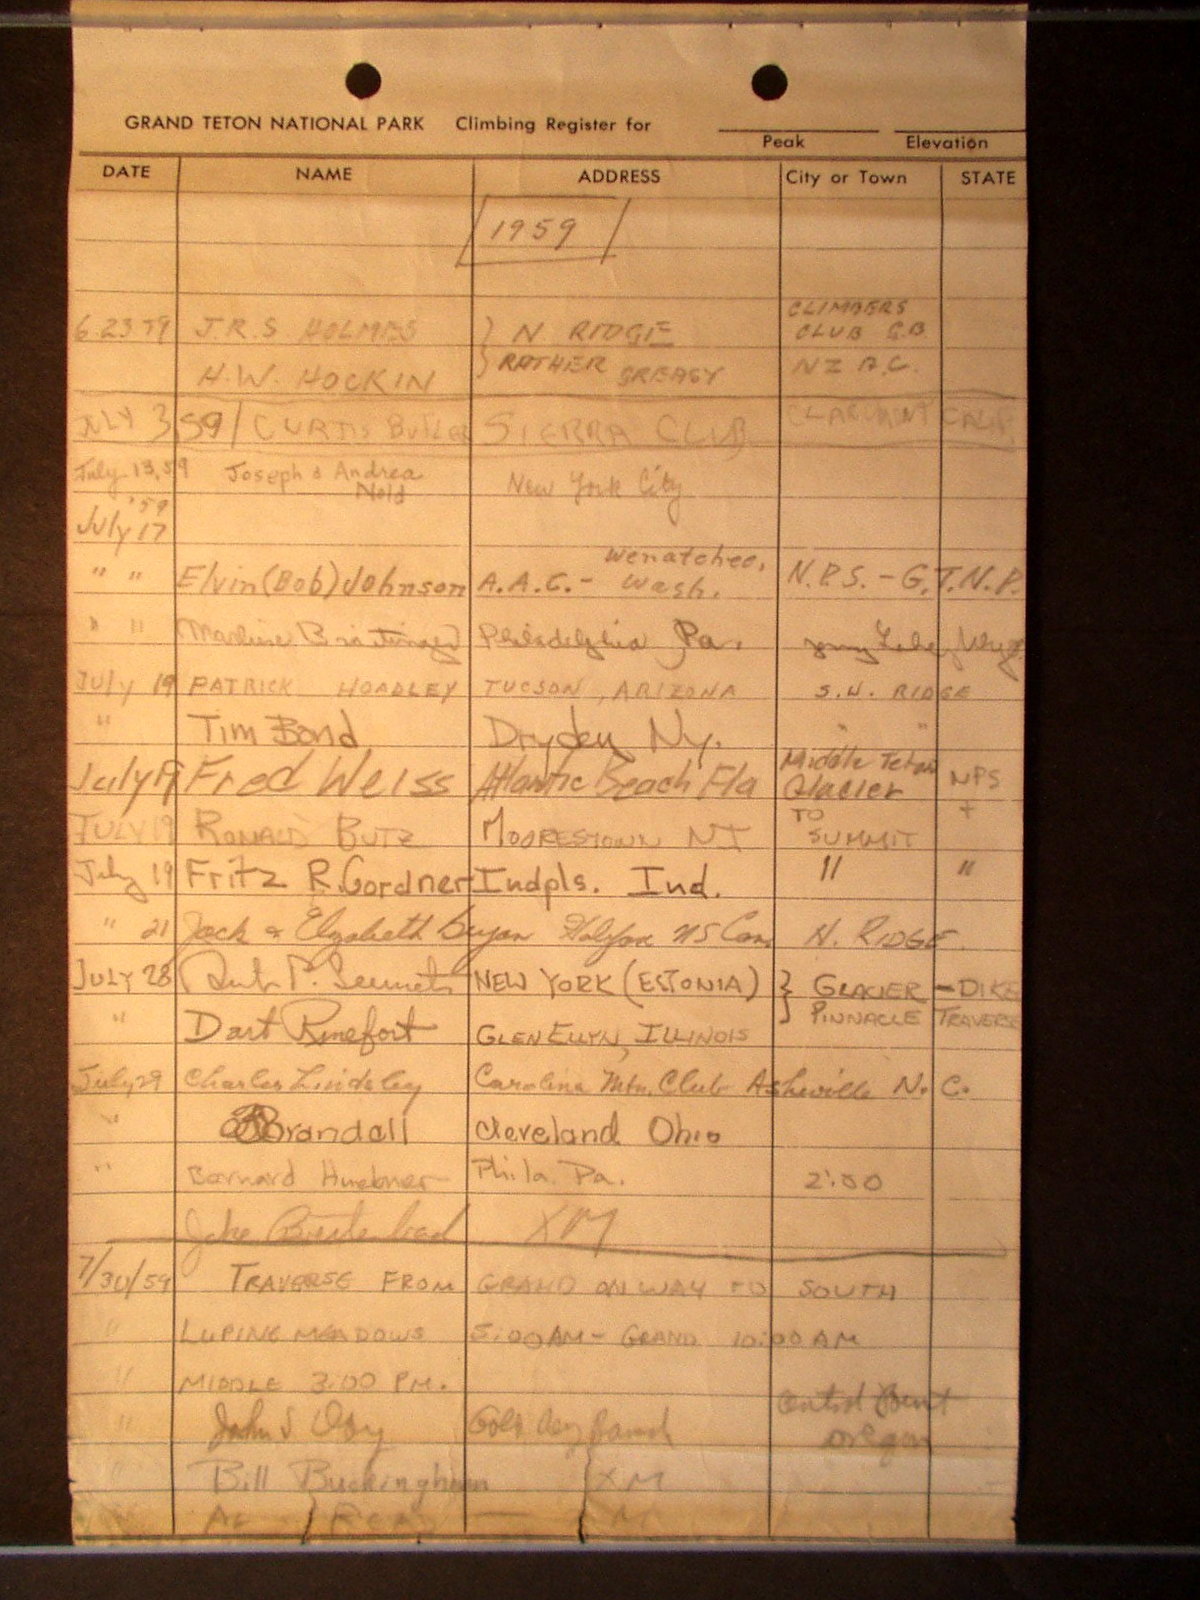 GRAND TETON NATIONAL PARK Climbing Register for
Peak Elevation
DATE NAME ADDRESS City or Town STATE
1959
CLIMBERS
6.23.59 J.R.S HOLMES } N RIDGE CLUB G.B.
H.W. HOCKIN } RATHER GREASY N Z A.C.
JULY 3, 59 / CURTIS BUTLER SIERRA CLUB CLAREMONT CALIF.
July 13, 59 Joseph & Andrea New York City
Nold
'59
July 17
Wenatchee,
" " Elvin (Bob) Johnson A.A.C. - Wash. N.P.S. - G.T.N.P.
" " Philadelphia Pa.
JULY 19 PATRICK HOADLEY TUCSON, ARIZONA S.W. RIDGE
" Tim Bond Dryden Ny. " "
July 19 Fred Weiss Atlantic Beach Fla Middle Teton Glacier NPS
JULY 19 RONALD BUTZ MOORESTOWN NJ TO SUMMIT +
July 19 Fritz R. Gordner Indpls. Ind. " "
" 21 Jack & Elizabeth Bryan Halifax NS Can. N. RIDGE.
JULY 28 NEW YORK (ESTONIA) } GLACIER - DIKE
" Dart Rinefort GLEN ELLYN, ILLINOIS } PINNACLE TRAVERSE
July 29 Charles Lindsley Carolina Mtn. Club Asheville N. C.
" Brandall Cleveland Ohio
" Bernard Huebner Phila. Pa. 2:00
Jake XM
7/30/59 TRAVERSE FROM GRAND ON WAY TO SOUTH
" LUPINE MEADOWS 5:00 AM - GRAND 10:00 AM
" MIDDLE 3:00 PM.
" John S Gold Ray Central Point
Oregon
" Bill Buckingham { XM
AL READ